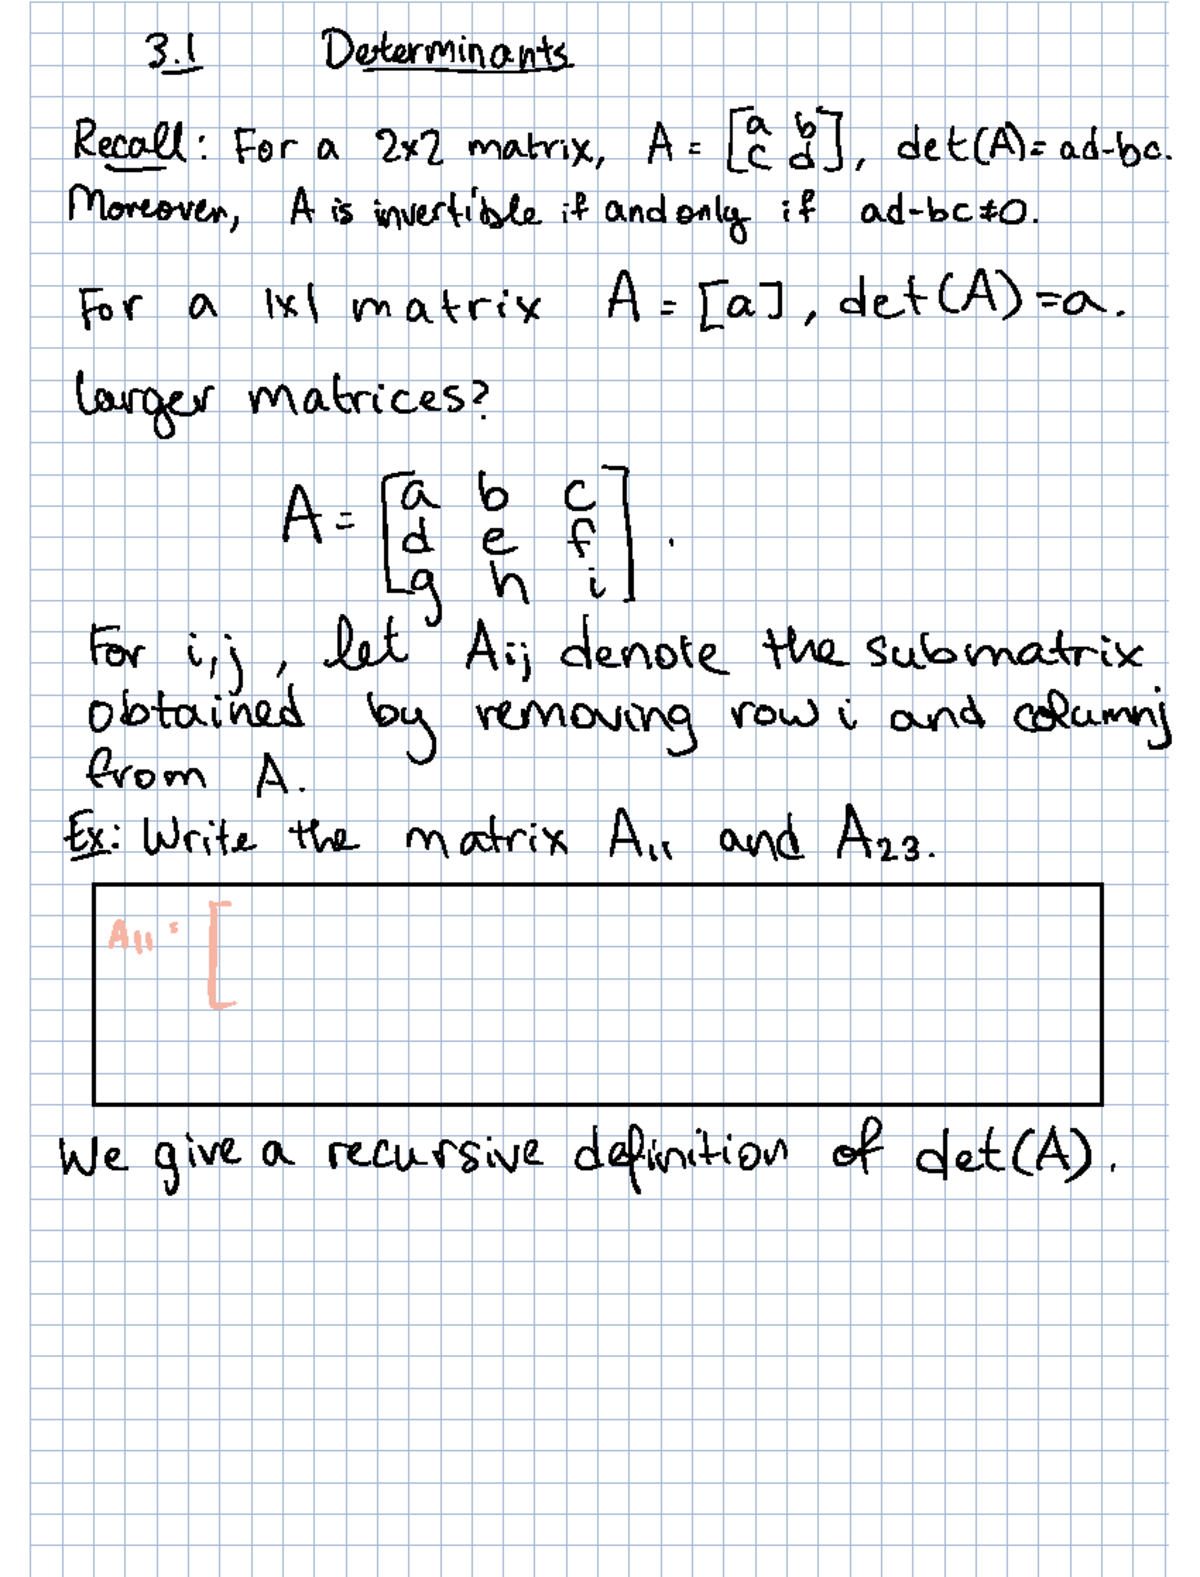 3.1 Determinants
Recall: For a 2x2 matrix, A = [a b
c d], det(A)= ad-bc.
Moreover, A is invertible if and only if ad-bc≠0.
For a 1x1 matrix A = [a], det(A)=a.
Larger matrices?
A = [a b c
d e f
g h i].
For i,j, let Aij denote the submatrix
obtained by removing row i and column j
from A.
Ex: Write the matrix A11 and A23.
A11 = [
We give a recursive definition of det(A).